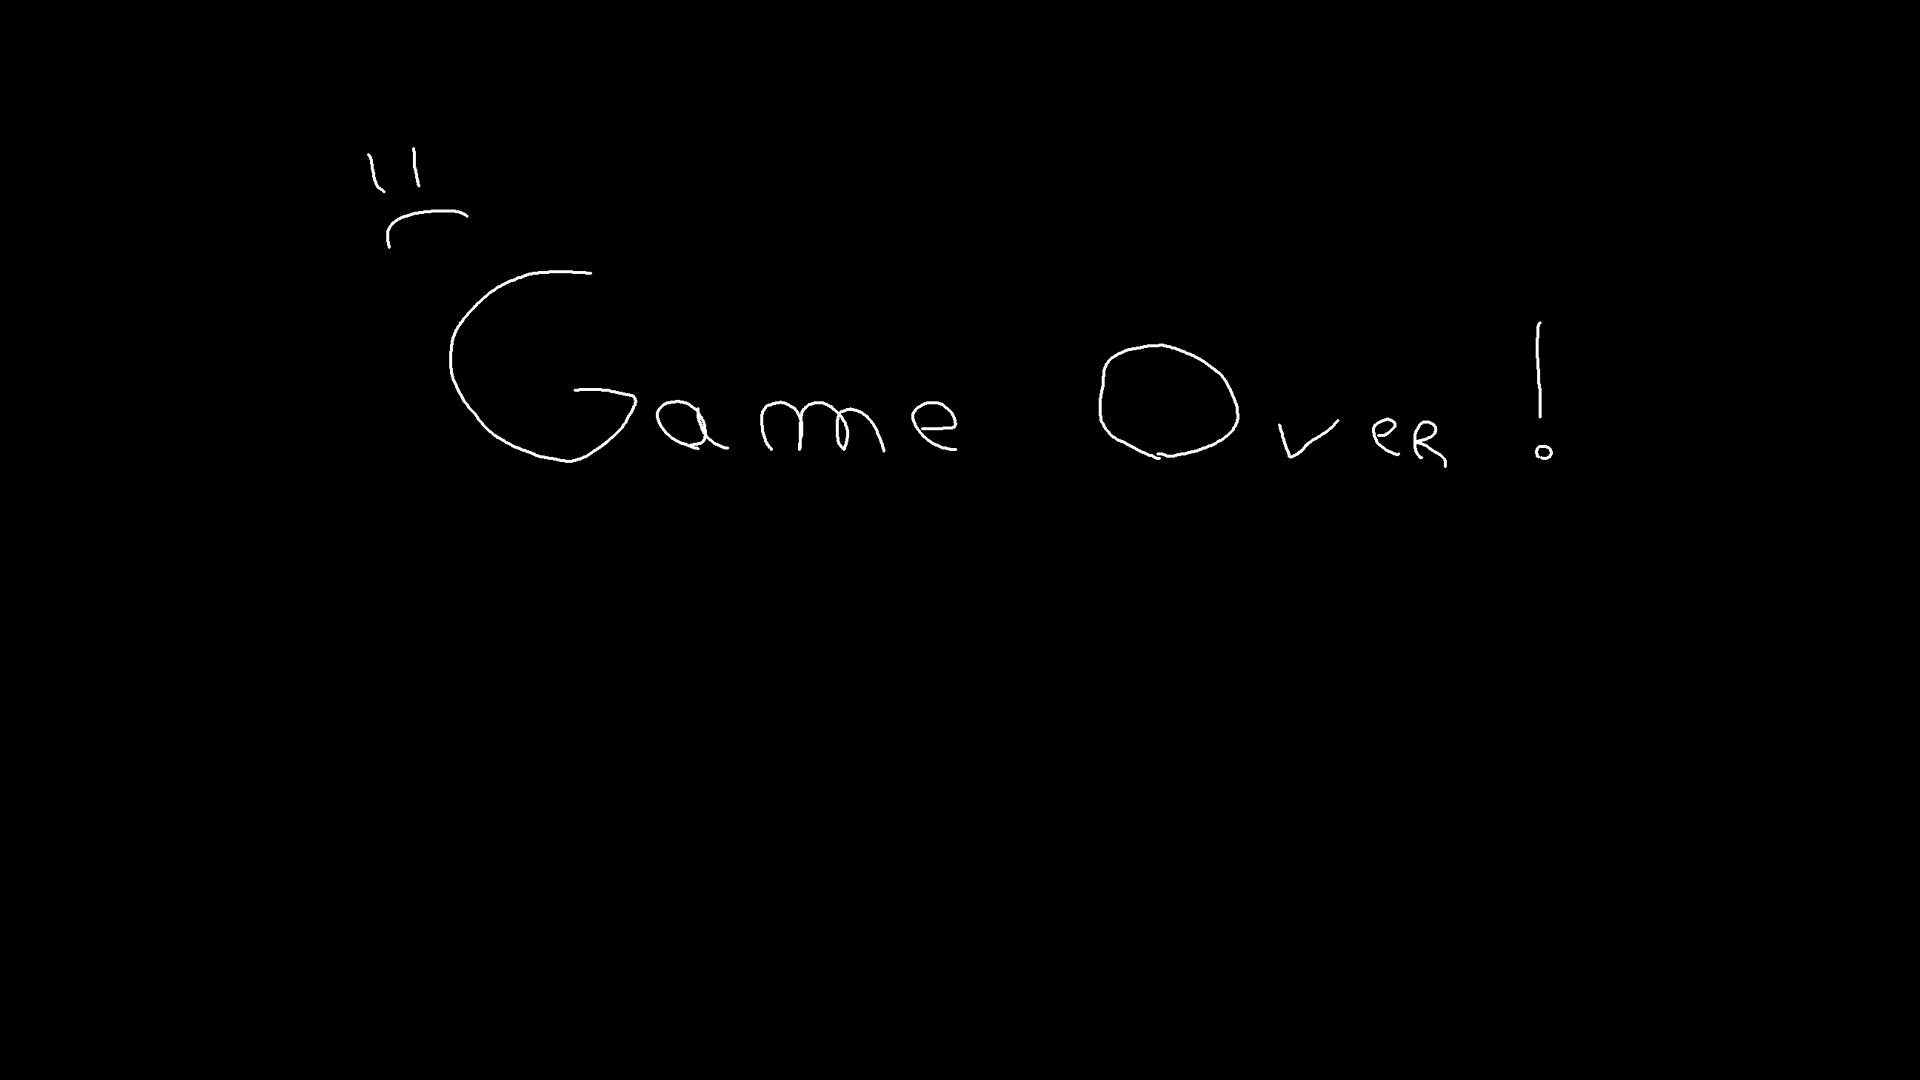 Game Over!